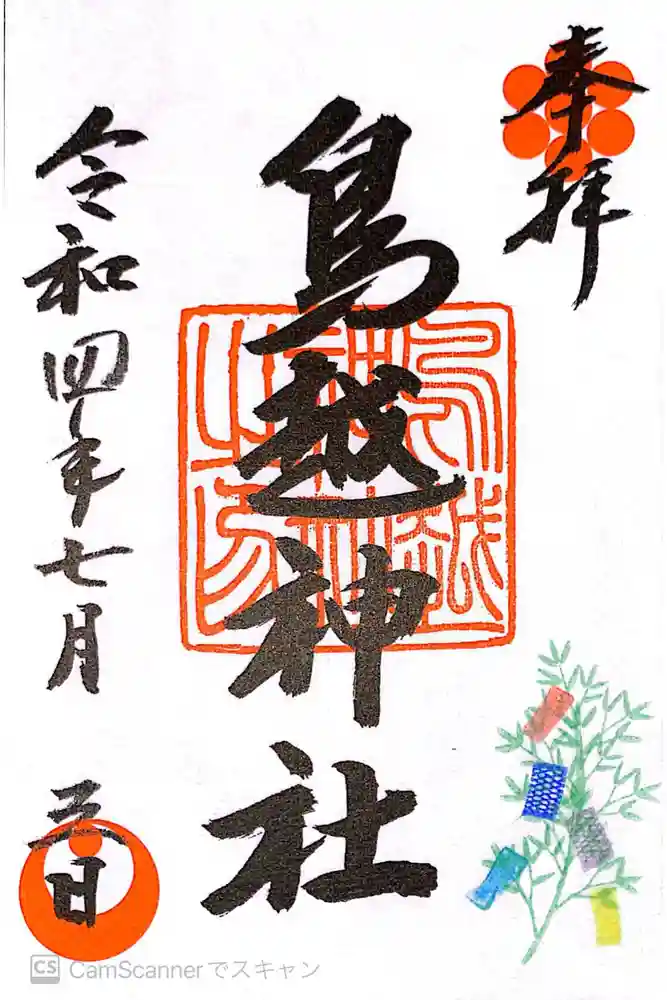 奉拝
鳥越神社
鳥越神社之印
令和四年七月三日
CS CamScannerでスキャン